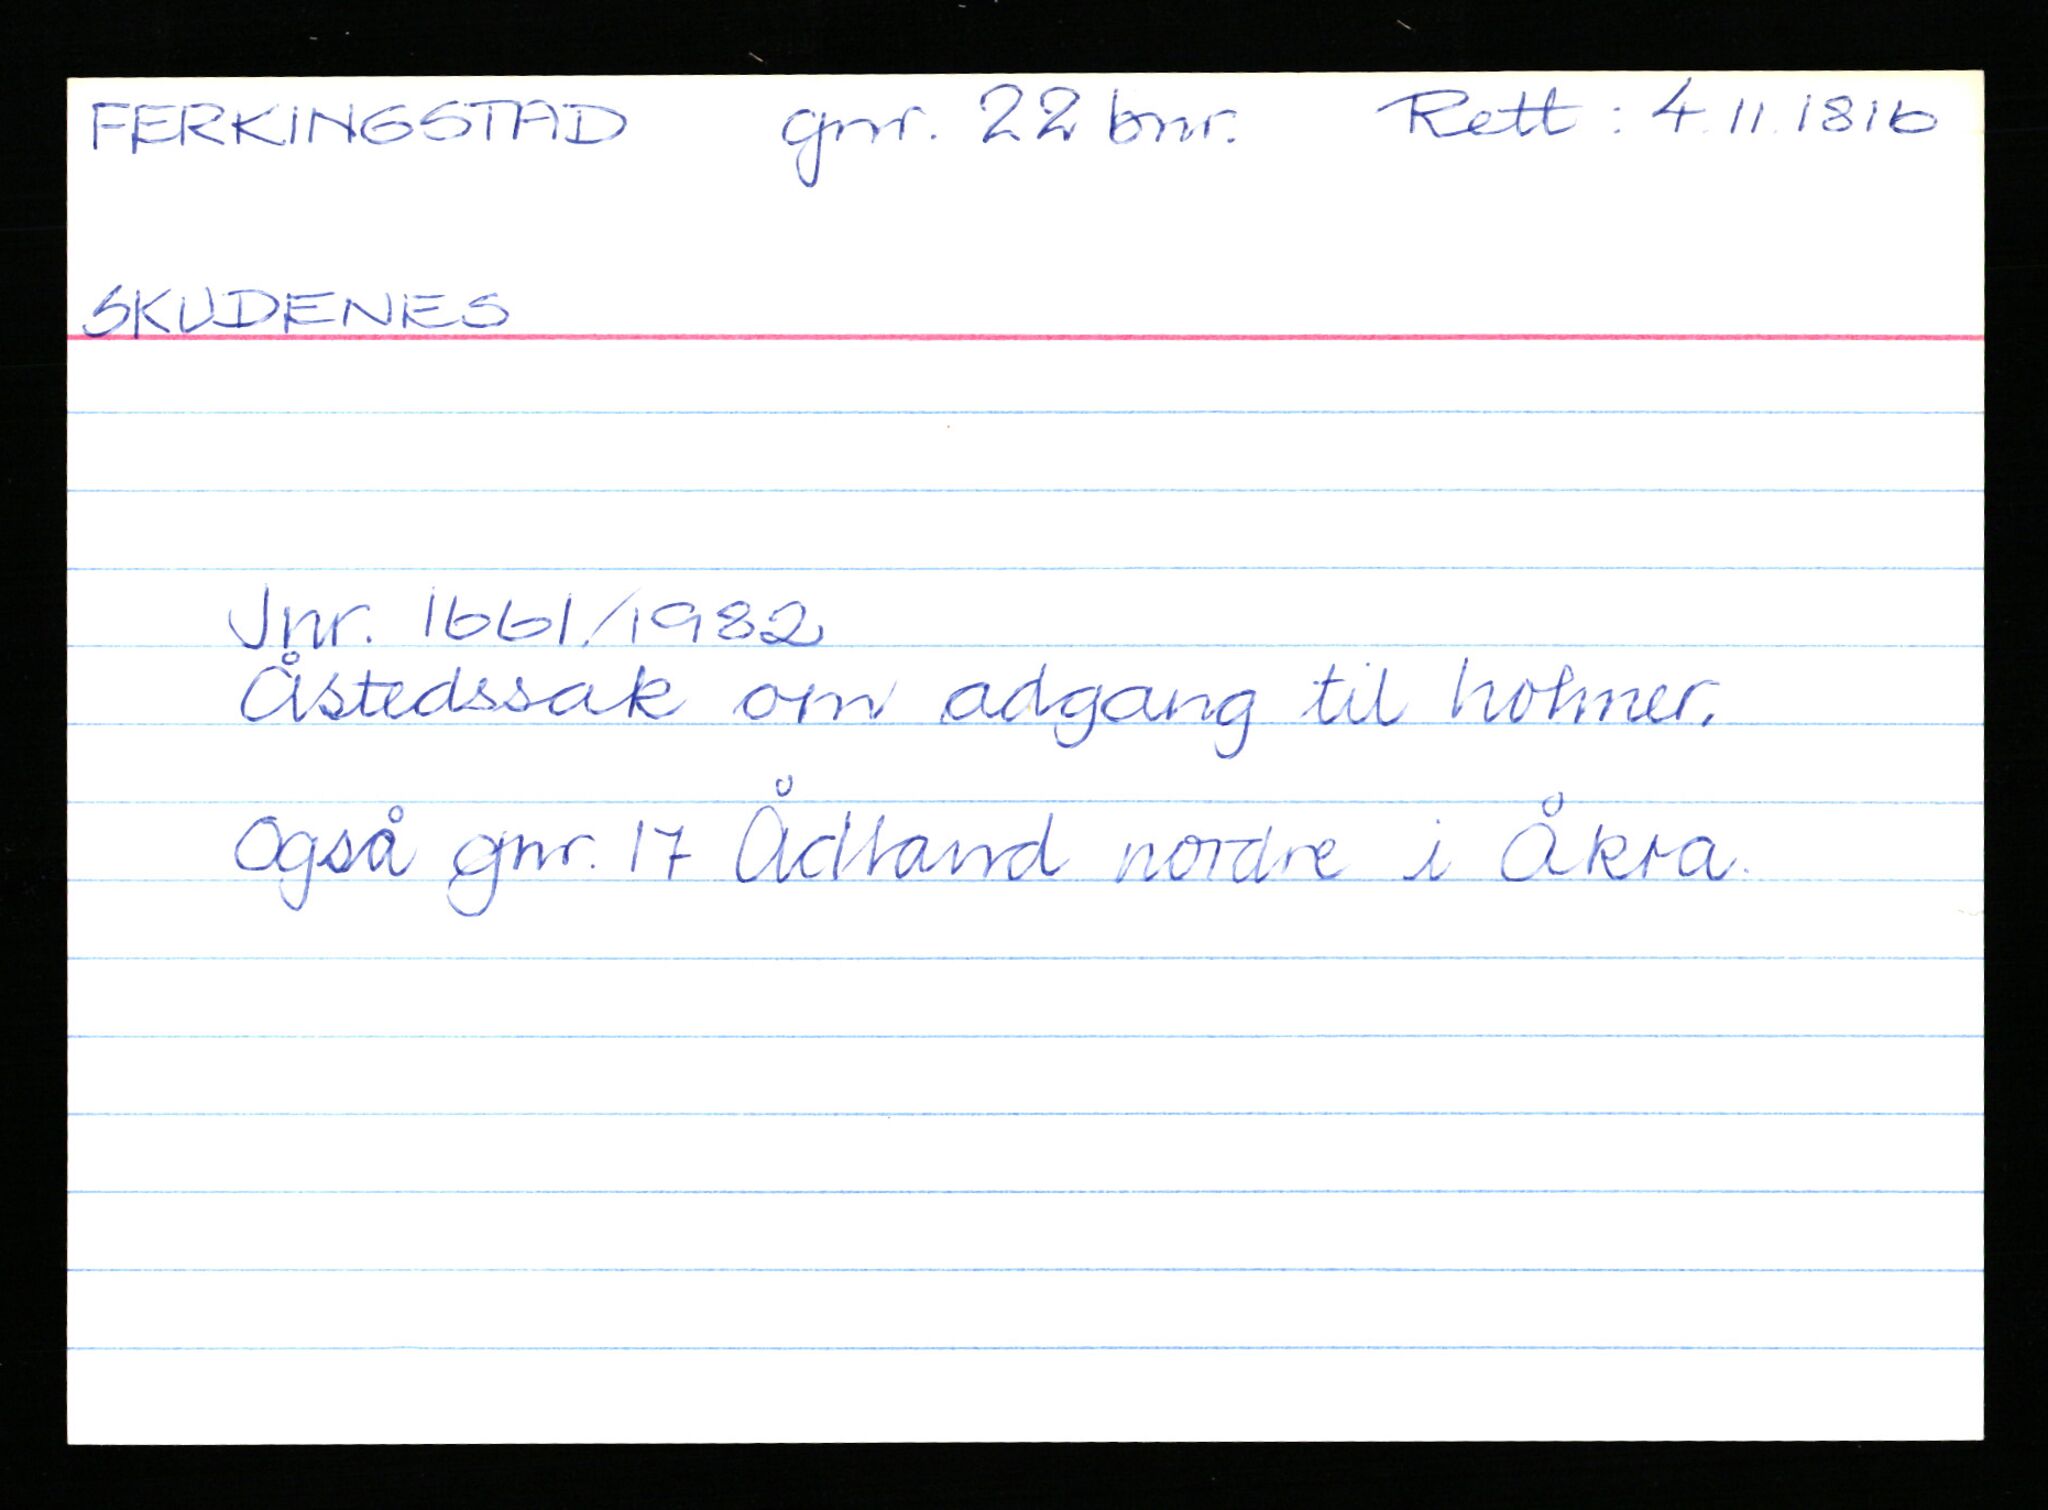 FERKINGSTAD gnr. 22 bnr. Rett : 4.11.1816
SKUDENES
Jnr. 1661/1982
Åstedssak om adgang til holmer.
Også gnr. 17 Ådland nordre i Åkra.